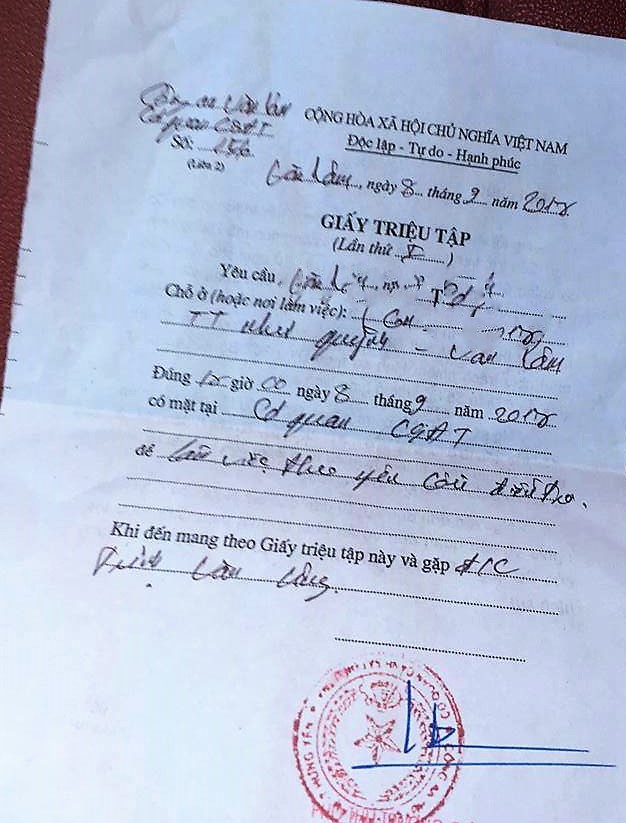 Công an Văn Lâm
Cơ quan CSĐT
CỘNG HÒA XÃ HỘI CHỦ NGHĨA VIỆT NAM
Độc lập - Tự do - Hạnh phúc
Số: 156
(Liên 2)
Văn Lâm, ngày 8 tháng 9 năm 2018
GIẤY TRIỆU TẬP
(Lần thứ I)
Yêu cầu
Chỗ ở (hoặc nơi làm việc):
TT Như Quỳnh - Văn Lâm
Đúng 15 giờ 00 ngày 8 tháng 9 năm 2018
có mặt tại Cơ quan CSĐT
để làm việc theo yêu cầu điều tra.
Khi đến mang theo Giấy triệu tập này và gặp đ/c
Văn
HƯNG YÊN
CÔNG AN